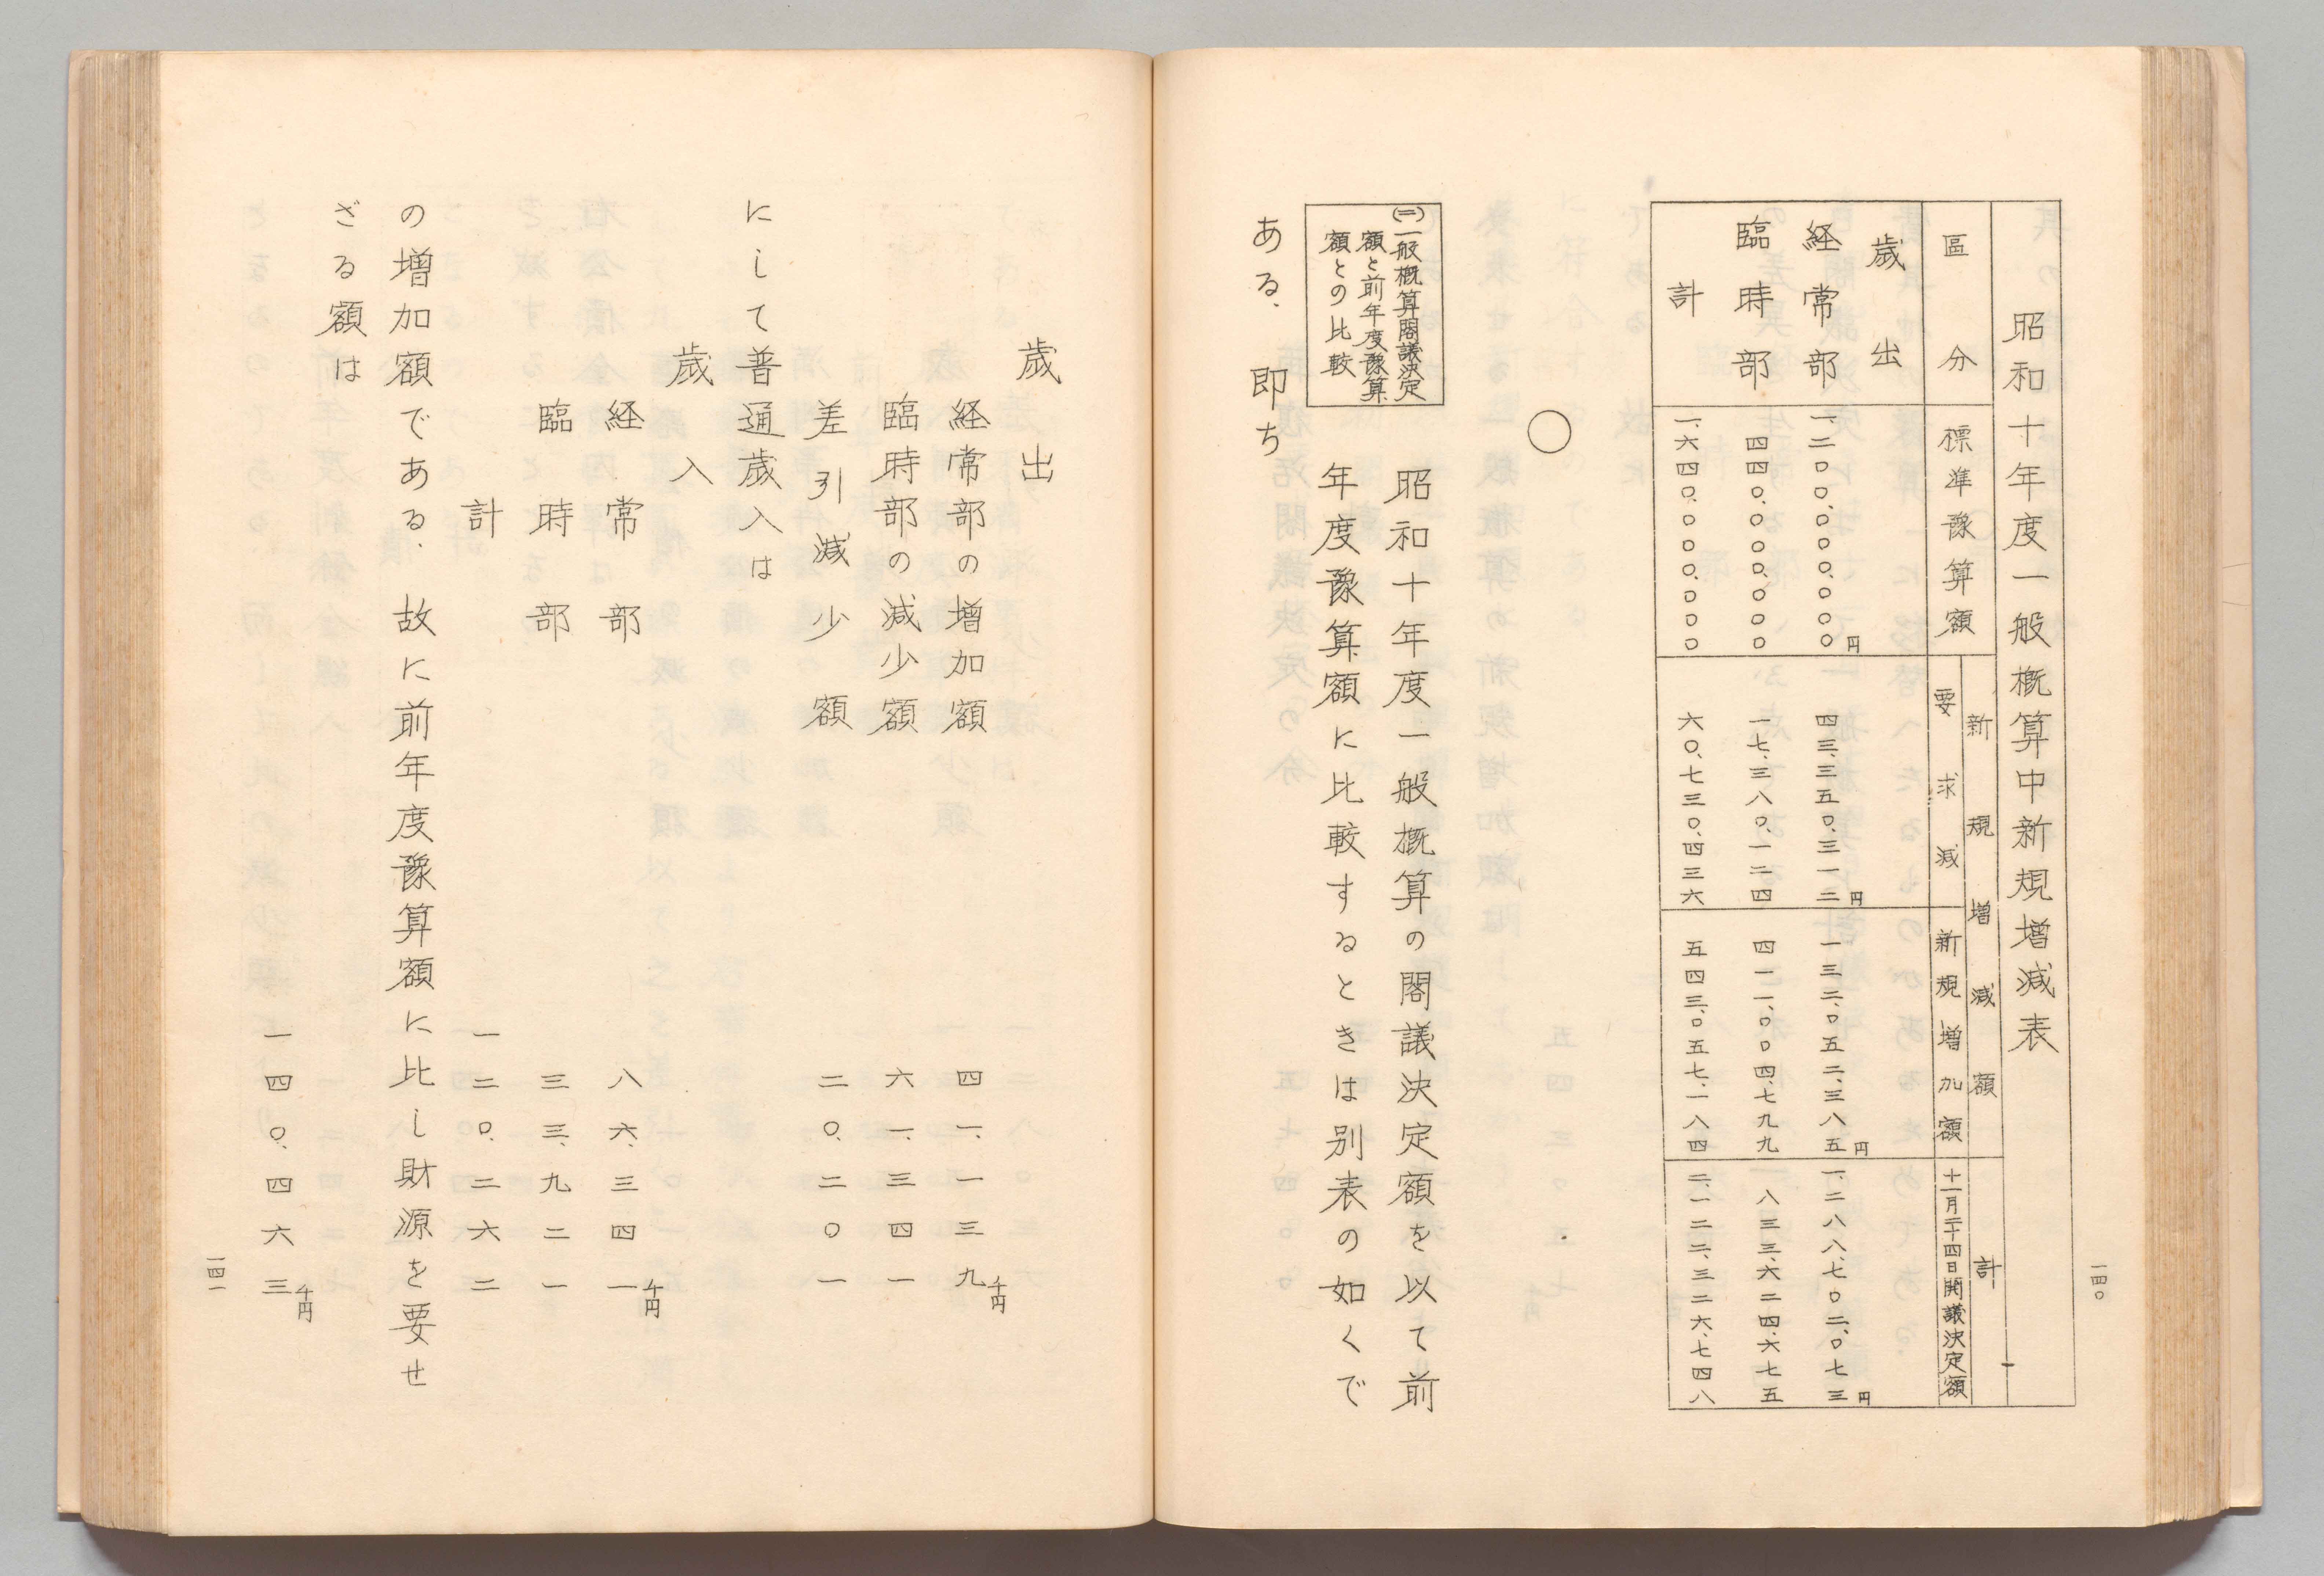 一四〇
昭和十年度一般概算中新規増減表
區分 標準豫算額 新規増減額 要求減 新規増加額 計 十一月二十四日閣議決定額
歳出
経常部 一、二〇〇、〇〇〇、〇〇〇円 四三、三五〇、三一二円 一三二、〇五二、三八五円 一、二八八、七〇二、〇七三円
臨時部 四四〇、〇〇〇、〇〇〇 一七、三八〇、一二四 四一一、〇〇四、七九九 八三三、六二四、六七五
計 一、六四〇、〇〇〇、〇〇〇 六〇、七三〇、四三六 五四三、〇五七、一八四 二、一二二、三二六、七四八
〇
(二)一般概算閣議決定
額と前年度豫算
額との比較
昭和十年度一般概算の閣議決定額を以て前
年度豫算額に比較するときは別表の如くで
ある、即ち
歳出
経常部の増加額 四一、一三九千円
臨時部の減少額 六一、三四一
差引減少額 二〇、二〇一
にして普通歳入は
歳入
経常部 八六、三四一千円
臨時部 三三、九二一
計 一二〇、二六二
の増加額である、故に前年度豫算額に比し財源を要せ
ざる額は
一四〇、四六三千円
一四一